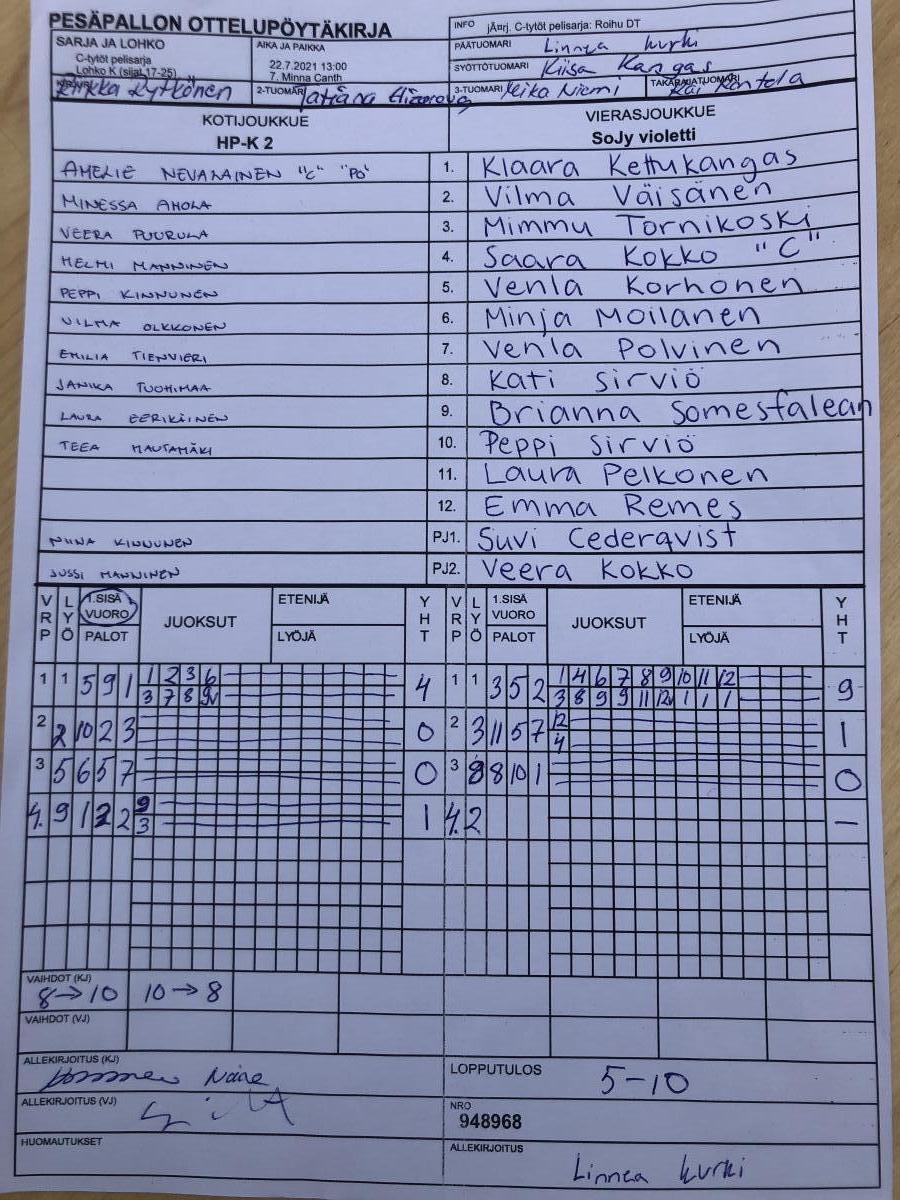 PESÄPALLON OTTELUPÖYTÄKIRJA
INFO jÄ¤rj. C-tytöt pelisarja: Roihu DT
SARJA JA LOHKO
C-tytöt pelisarja
Lohko K (sijat 17-25)
AIKA JA PAIKKA
22.7.2021 13:00
7. Minna Canth
PÄÄTUOMARI Linnea Kurki
SYÖTTÖTUOMARI Kiisa Kangas
Kytkönen
2-TUOMARI Tatiana
3-TUOMARI Meika Niemi
TAKARAJATUOMARI Kai Kontola
KOTIJOUKKUE
HP-K 2
VIERASJOUKKUE
SoJy violetti
AMELIE NEVALAINEN "C" "PO" 1. Klaara Kettukangas
MINESSA AHOLA 2. Vilma Väisänen
VEERA PUURULA 3. Mimmu Tornikoski
HELMI MANNINEN 4. Saara Kokko "C"
PEPPI KINNUNEN 5. Venla Korhonen
VILMA OLKKONEN 6. Minja Moilanen
EMILIA TIENVIERI 7. Venla Polvinen
JANIKA TUOHIMAA 8. Kati Sirviö
LAURA EERIKÄINEN 9. Brianna Somesfalean
TEEA MAUTAMÄKI 10. Peppi Sirviö
11. Laura Pelkonen
12. Emma Remes
NIINA KINNUNEN PJ1. Suvi Cederqvist
JUSSI MANNINEN PJ2. Veera Kokko
VRP LYÖ 1.SISÄ VUORO PALOT JUOKSUT ETENIJÄ LYÖJÄ YHT VRP LYÖ 1.SISÄ VUORO PALOT JUOKSUT ETENIJÄ LYÖJÄ YHT
1 1 5 9 1 1 2 3 6 4 1 1 3 5 2 1 4 6 7 8 9 10 11 12 9
3 7 8 9v 3 8 9 9 11 12v 1 1 1
2 2 10 2 3 0 2 3 11 5 7 12 1
4
3 5 6 5 7 0 3 8 8 10 1 0
4. 9 1 2 2 9 1 4. 2 –
3
VAIHDOT (KJ)
8→10 10→8
VAIHDOT (VJ)
ALLEKIRJOITUS (KJ)
LOPPUTULOS 5–10
ALLEKIRJOITUS (VJ)
NRO
948968
HUOMAUTUKSET
ALLEKIRJOITUS
Linnea Kurki